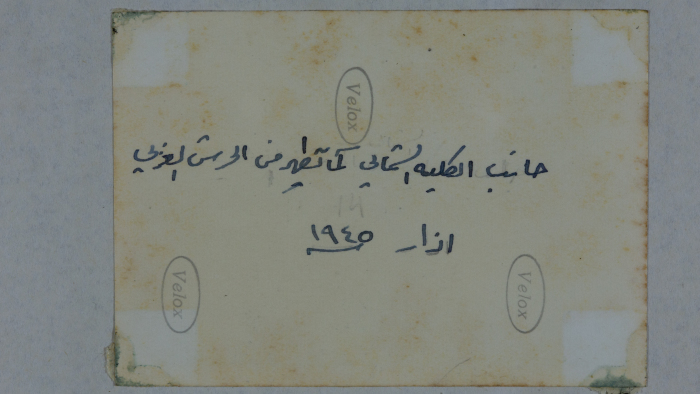 Velox
جانب الكليه الشمالي كما تظهر من الحرش الغربي
اذار ١٩٤٥
Velox
Velox